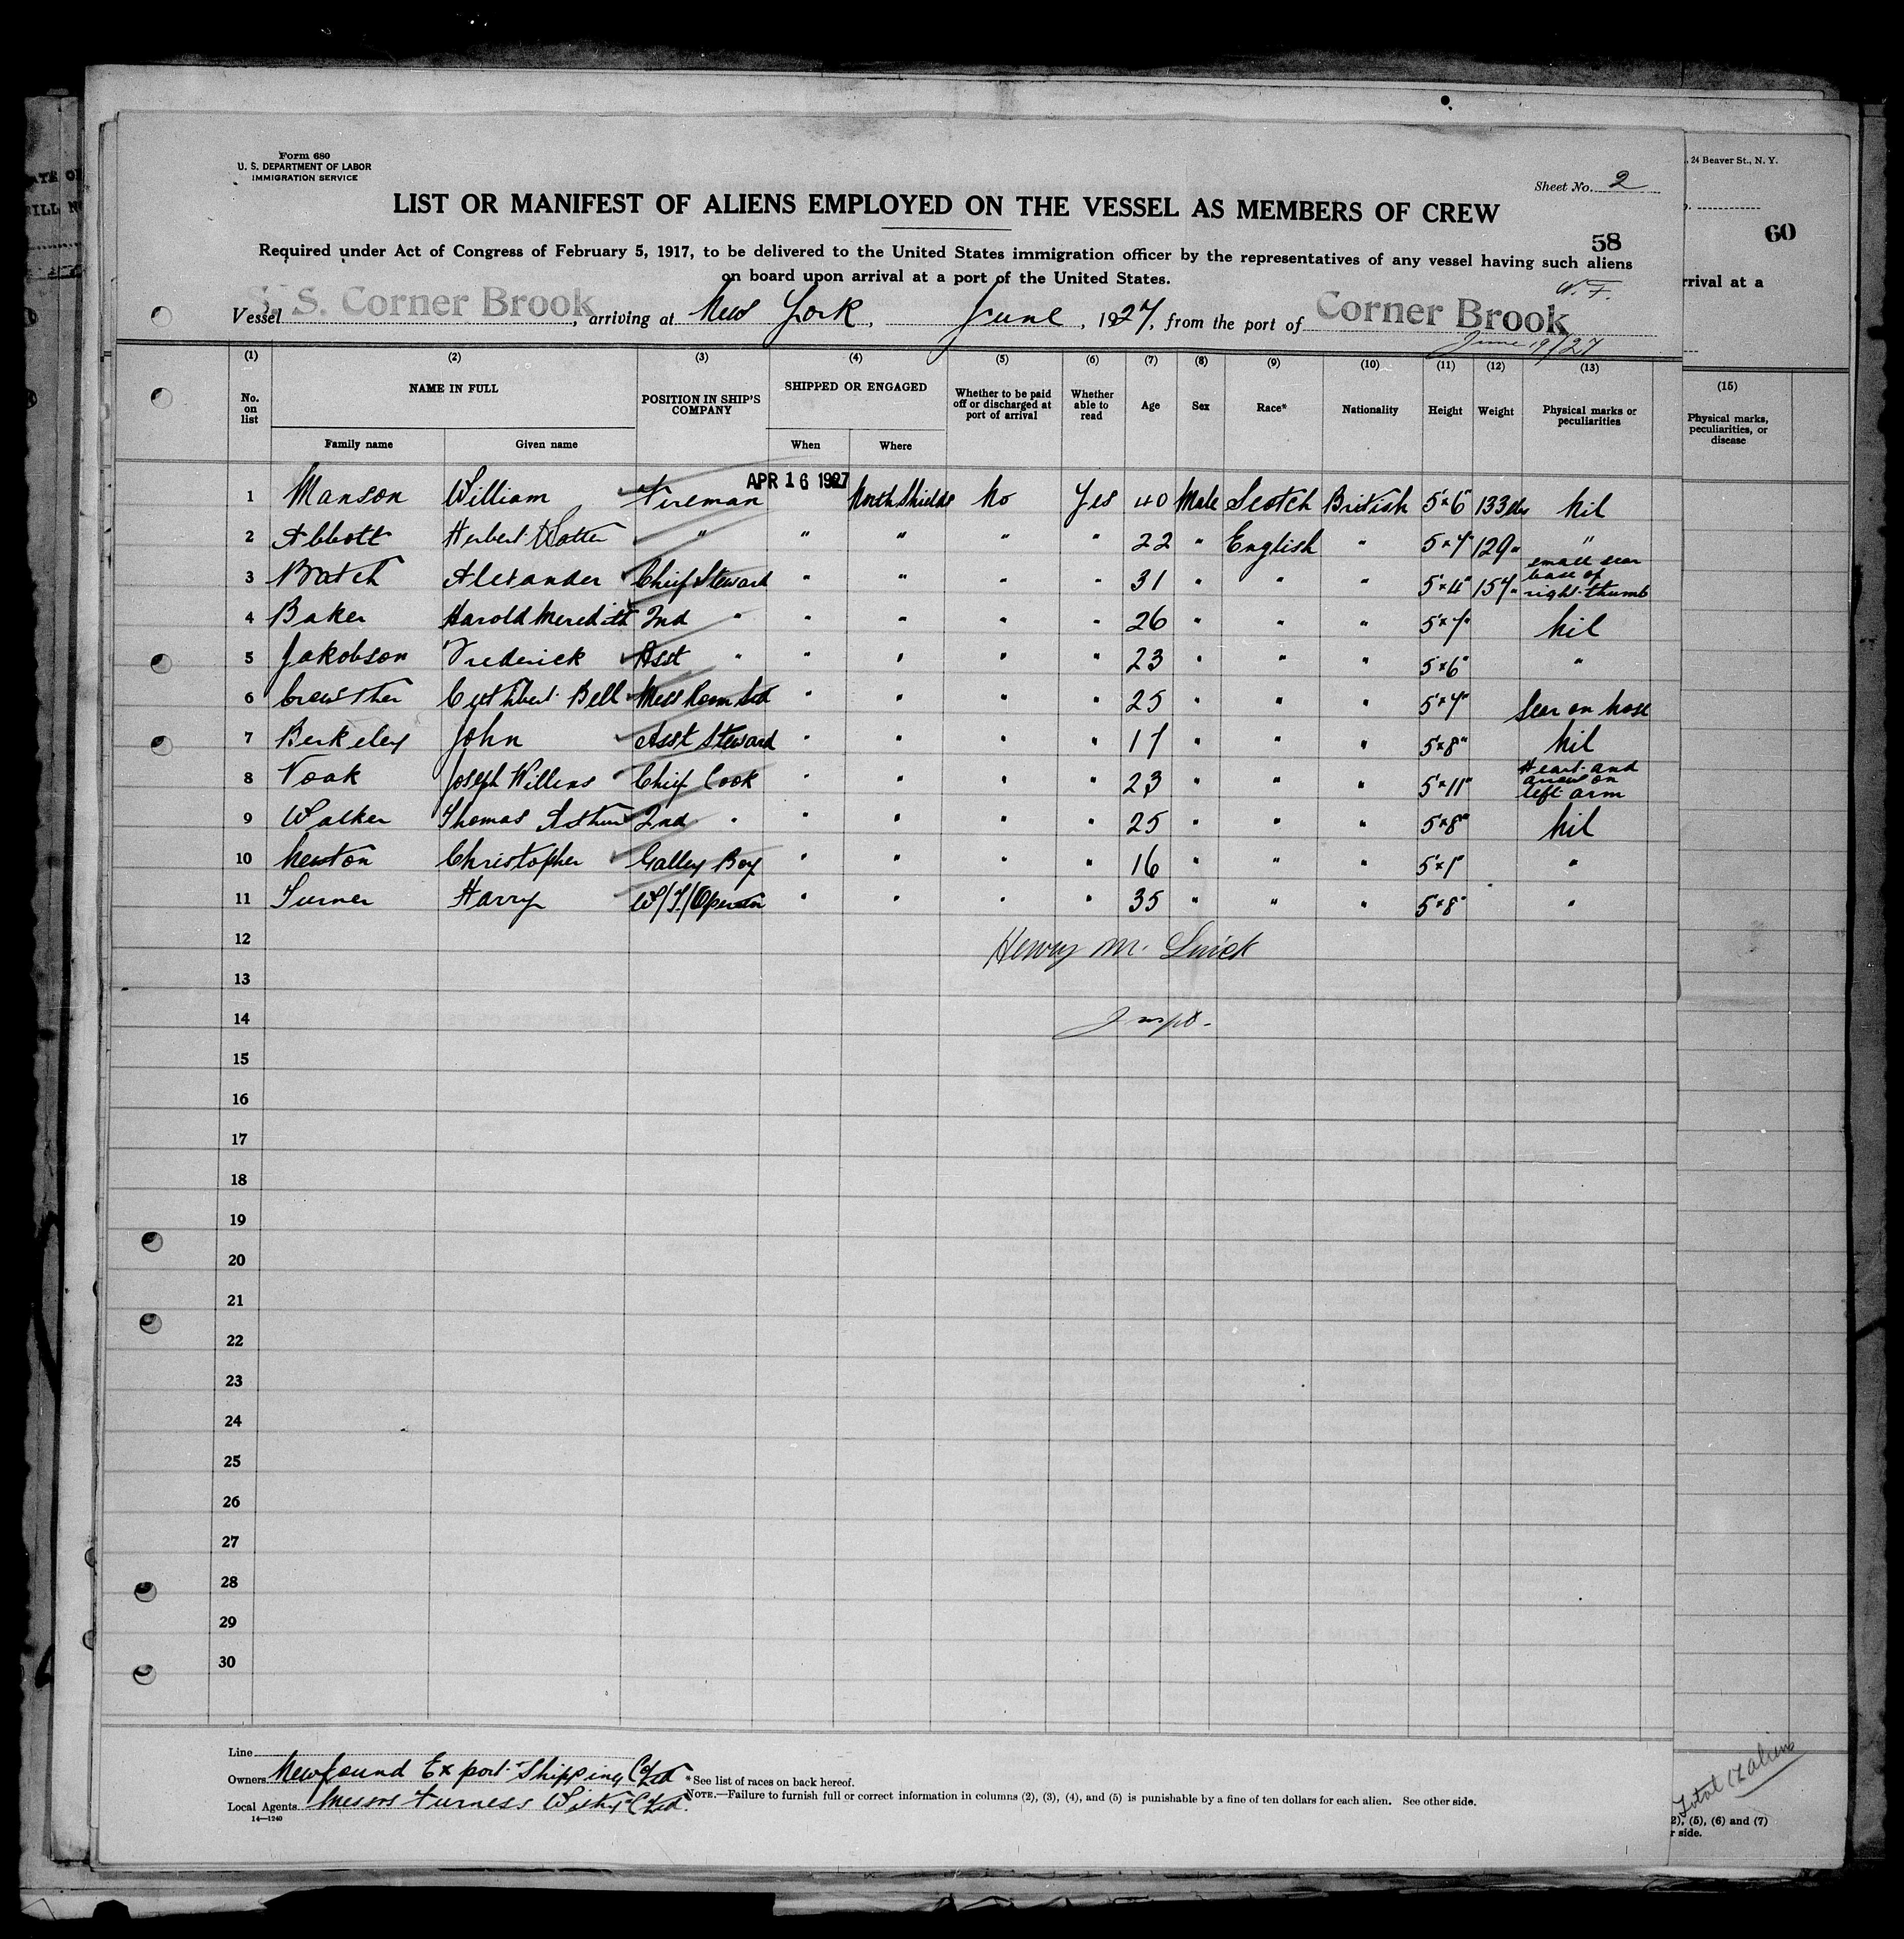 Form 680
U. S. DEPARTMENT OF LABOR
IMMIGRATION SERVICE
Sheet No. 2
LIST OR MANIFEST OF ALIENS EMPLOYED ON THE VESSEL AS MEMBERS OF CREW
58
Required under Act of Congress of February 5, 1917, to be delivered to the United States immigration officer by the representatives of any vessel having such aliens
on board upon arrival at a port of the United States.
N. F.
Vessel S. S. Corner Brook, arriving at New York, June, 1927, from the port of Corner Brook
June 19/27
(1) (2) (3) (4) (5) (6) (7) (8) (9) (10) (11) (12) (13)
No. on list NAME IN FULL POSITION IN SHIP'S COMPANY SHIPPED OR ENGAGED Whether to be paid off or discharged at port of arrival Whether able to read Age Sex Race* Nationality Height Weight Physical marks or peculiarities
Family name Given name When Where
1 Manson William Fireman APR 16 1927 North Shields No Yes 40 Male Scotch British 5'x6" 133 lbs Nil
2 Abbott Herbert " " " " " 22 " English " 5'x7" 129 " "
3 Alexander Chief Steward " " " " 31 " " " 5'x4" 157 " small scar base of right thumb
4 Baker Harold Meredith 2nd " " " " " 26 " " " 5'x7" Nil
5 Jakobson Frederick Asst " " " " " 23 " " " 5'x6" "
6 Crowther Cuthbert Bell Mess Room Std " " " " 25 " " " 5'x7" Scar on Nose
7 Berkeley John Asst Steward " " " " 17 " " " 5'x8" Nil
8 Noak Joseph Willens Chief Cook " " " " 23 " " " 5'x11" Heart and arrow on left arm
9 Walker Thomas Arthur 2nd " " " " " 25 " " " 5'x8" Nil
10 Newton Christopher Galley Boy " " " " 16 " " " 5'x1" "
11 Turner Harry W/T/Operator " " " " 35 " " " 5'x8" "
12
Henry M.
13
14
Inspt.
15
16
17
18
19
20
21
22
23
24
25
26
27
28
29
30
Line
Owners Newfound Export Shipping Co Ltd
Local Agents Messrs Furness Withy & Co Ltd.
14—1240
*See list of races on back hereof.
NOTE.—Failure to furnish full or correct information in columns (2), (3), (4), and (5) is punishable by a fine of ten dollars for each alien. See other side.
, 24 Beaver St., N. Y.
60
rrival at a
(15)
Physical marks, peculiarities, or disease
2), (5), (6) and (7)
r side.